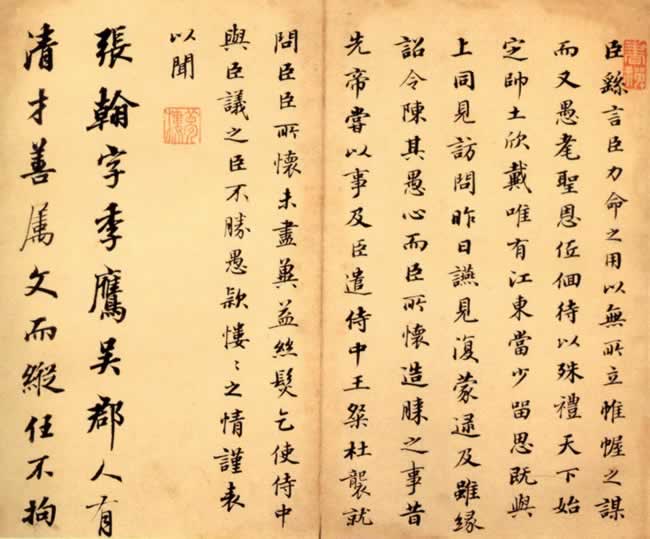 臣繇言臣力命之用以無所立帷幄之謀
而又愚耄聖恩低佪待以殊禮天下始
定帥土欣戴唯有江東當少留思既與
上同見訪問昨日讌見復蒙逮及雖緣
詔令陳其愚心而臣所懷造膝之事昔
先帝嘗以事及臣遣侍中王粲杜襲就
問臣臣所懷未盡冀益絲髮乞使侍中
與臣議之臣不勝愚款慺〻之情謹表
以聞
張翰字季鷹吳郡人有
清才善属文而縱任不拘